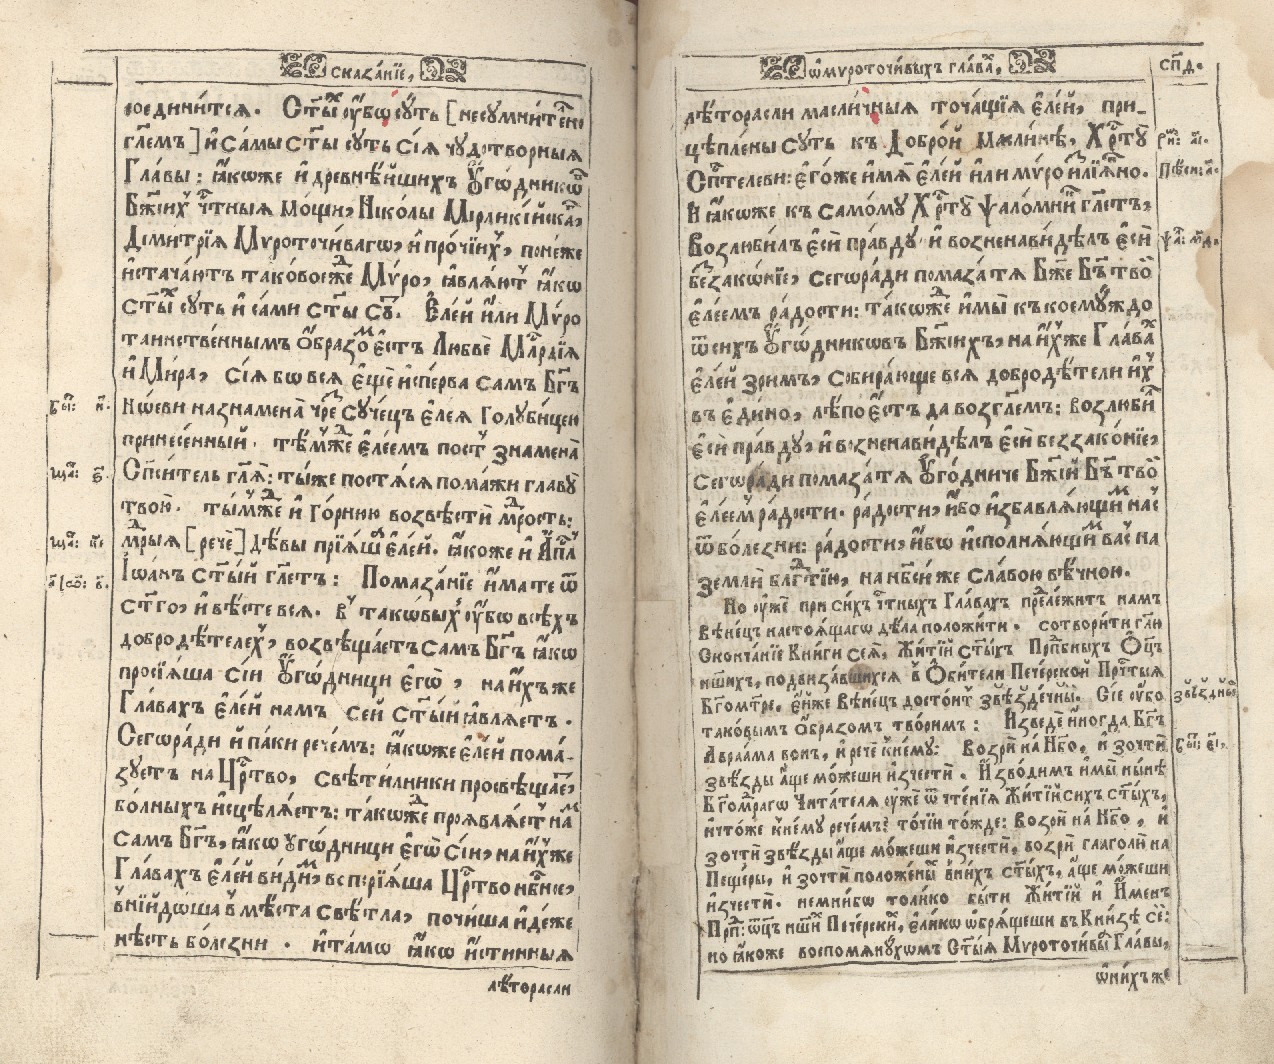 сказа́нїе,
соедини́тсѧ. Ст҃ы́ѧ ᲂу҆́бѡ сꙋ́ть [несꙋмни́телно
гл҃емъ] и҆ са́мы ст҃ы сꙋть сїѧ̀ чꙋдотво́рныѧ
Гла́вы: ꙗ҆́коже и҆ дре́внѣйшихъ Оу҆го́дникѡⷡ
Бж҃їихъ чⷭ҇тны́ѧ мощи, Нїко́лы Мѵрлїкі́йскаⷢ,
Дими́трїѧ Мѵроточи́вагѡ, и҆ про́чїихъ, поне́же
и҆стача́ютъ таково́еже Мѵ́ро, ꙗ҆влѧ́ютъ ꙗ҆́кѡ
ст҃ы́ѧ сꙋть и҆ са́ми ст҃ы сꙋⷮ. Є҆ле́й и҆лѝ Мѵ́ро
таи́нственнымъ ѻ҆́бразоⷨ є҆́стъ Любвѐ Млⷭ҇рдїѧ
и҆ Ми́ра, сїѧ̀ бо всѧ̀ є҆щѐ и҆спе́рва самъ Бг҃ъ
Нѡ́еви назнаменà чре́з сꙋче́цъ є҆ле́ѧ Голꙋби́цею
принесе́нный. тѣ́мже є҆ле́емъ поⷭ҇тъ знаменà
Сп҃си́тель гл҃ѧ: ты́же постѧ́сѧ пома́жи главꙋ̀
твою̀. ты́мже и҆ го́рнюю возвѣстѝ мꙋ́дрость:
мꙋ́дрыѧ [речѐ] дѣ́вы прїѧ́ша є҆ле́й. ꙗ҆́коже и҆ А҆пⷭ҇лъ
Іѡа́ннъ ст҃ы́й гл҃етъ: Помаза́нїе и҆́мате ѿ
ст҃гѡ, и҆ вѣ́сте всѧ̀. въ такѡвы́хъ ᲂу҆́бѡ всѣ́хъ
добродѣ́телехъ, возвѣща́етъ самъ Бг҃ъ ꙗ҆́кѡ
просїѧ́ша сїѝ Оу҆го́дници є҆гѡ̀, на ни́хъже
Гла́вахъ є҆ле́й намъ сей ст҃ы́й ꙗ҆влѧ́етъ.
Сегѡра́ди и҆ па́ки рече́мъ: ꙗ҆́коже є҆ле́й пома́-
зꙋетъ на Црⷭ҇тво, свѣти́лники просвѣща́еⷮ,
бо́лныхъ и҆сцѣлѧ́етъ: та́кѡже проѧвлѧ́етъ наⷨ
самъ Бг҃ъ, ꙗ҆́кѡ ᲂу҆го́дници є҆гѡ̀ сїѝ, на ни́хже
Гла́вахъ є҆ле́й ви́димъ, воспрїѧ́ша Црⷭ҇тво нбⷭ҇ное,
внїидо́ша въ мѣ́ста свѣ́тла, почи́ша и҆дѣ́же
нѣ́сть болѣзни. и҆ та́мѡ ꙗ҆́кѡ и҆́стинныѧ
лѣ́торасли
Бы: и҃.
Маⷴ: ѕ҃.
Маⷴ: к҃е
а҃ Іѡ: в҃.
ѡ҆ мѵроточи́выхъ гла́ваⷯ,
сп҃д.
лѣ́торасли масли́чныѧ точа́щїѧ є҆ле́й, при-
цѣплены сꙋть къ До́брой Ма́слинѣ, Хрⷭ҇тꙋ̀
Сп҃си́телеви: є҆го́же и҆́мѧ є҆ле́й и҆лѝ мѵ́ро и҆злїѧ́нно.
И҆ ꙗ҆́коже къ самомꙋ Хрⷭ҇тꙋ̀ ѱало́мникъ гл҃етъ,
Возлюби́лъ є҆сѝ пра́вдꙋ и҆ возненави́дѣлъ є҆сѝ
беззако́нїе, сегѡра́ди пома́за тѧ Бж҃е Бг҃ъ тво́й
є҆ле́емъ ра́дости: та́кѡже и҆ мы̀ къ коемꙋ́ждо
ѿ си́хъ Оу҆го́дникѡвъ Бж҃їихъ, на ни́хже Гла́ваⷯ
є҆ле́й зримъ, собира́юще всѧ̀ добродѣ́тели и҆́хъ
въ є҆ди́но, лѣ́по є҆́стъ да возгл҃емъ: возлюби́лъ
є҆сѝ пра́вдꙋ, и҆ возненави́дѣлъ є҆сѝ беззако́нїе,
сегѡра́ди пома́за тѧ Оу҆го́дниче Бж҃їй Бг҃ъ тво́й
є҆ле́емъ ра́дости. ра́дости, и҆́бо и҆збавлѧ́ющимъ насъ
ѿ болѣзни: ра́дости, и҆́бѡ и҆сполнѧ́ющимъ васъ на
землѝ блгⷣтїю, на нб҃сѝ же сла́вою вѣ́чною.
Но ᲂу҆жѐ при си́хъ чⷭ҇тныхъ Гла́вахъ прⷣележи́тъ намъ
вѣне́цъ настоѧ́щагѡ дѣла положи́ти. сотвори́ти глю
Сконча́нїе Кни́ги сеѧ̀, Житі́й ст҃ы́хъ Прпⷣбныхъ Ѻ҆ц҃ъ
на́шихъ, подвиза́вшихсѧ въ Ѻ҆би́тели Пече́рской Прⷭ҇ты́ѧ
Бг҃ома́тре, є҆́йже вѣне́цъ досто́итъ звѣ́здечный. Сїѐ ᲂу҆́бо
таковы́мъ ѻ҆́бразомъ твори́мъ: И҆зведѐ и҆ногда̀ Бг҃ъ
Авраа́ма вонъ, и҆ речѐ къ немꙋ: Воззрѝ на Нб҃о, и҆ зочтѝ
звѣ́зды а҆́ще мо́жеши и҆счестѝ. И҆зво́димъ и҆ мы̀ ны́нѣ
Бг҃омꙋ́драго Чита́телѧ ᲂу҆жѐ ѿ чте́нїѧ Житі́й си́хъ ст҃ы́хъ,
и҆ что́же къ немꙋ рече́мъ? то́чїю то́жде: воззрѝ на Нб҃о, и҆
зочтѝ звѣ́зды а҆́ще мо́жеши и҆счестѝ, воззрѝ глаго́лю на
Пеще́ры, и҆ зочтѝ положе́нныⷯ въ ни́хъ ст҃ы́хъ, а҆́ще мо́жеши
и҆счестѝ. не мни́бѡ то́лико бы́ти Житі́й и҆ И҆ме́нъ
Прпⷣ: ѻ҆ц҃ъ на́шиⷯ Пече́рскиⷯ, є҆ли́кѡ ѡ҆брѧ́щеши въ Кни́зѣ се́й:
но ꙗ҆́коже воспомѧнꙋ́хѡмъ Ст҃ы́ѧ Мѵроточи́выѧ Гла́вы,
ѡ҆ ни́хъже
Ри: а҃і.
Пѣсн: а҃.
ѱал: м҃д.
звѣ́здный
Бы: е҃і.